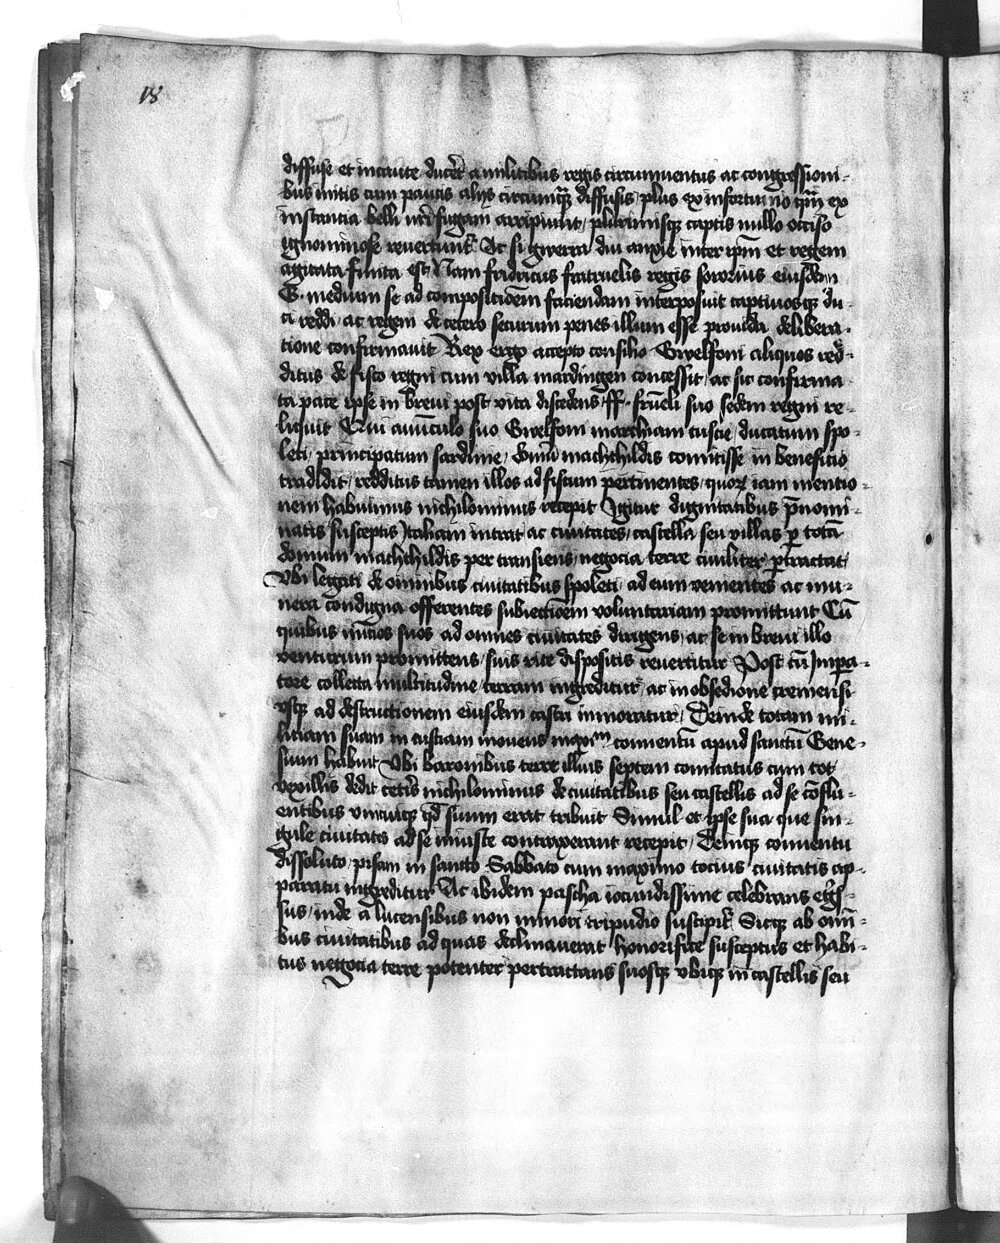 18
diffuse et incaute ducēt a militibus regis circumventus ac congressioni-
bus initis cum paucis alijs circumq̄ȝ diffusis plus ex infortūio q̄m ex
instantia belli inīti fugam arripiunt plurimisqȝ captis nullo occiso
ignominiose revertunt᷑ Ac si gwerra diu anxie inter ip̄m et regem
agitata finita est Nam fridricus fratruelis regis sororius eiusdem
G. medium se ad compositiōem faciendam interposuit captivosqȝ du-
ci reddi ac regem de cetero securum penes illum esse provida delibera-
tione confirmavit Rex ergo accepto consilio Gwelfoni aliquos red-
ditus de fisco regni cum villa mardingen concessit ac sic confirma-
ta pace ipse in brevi post vita discedens ff. fr̄ueli suo sedem regni re-
liquit Qui avūculo suo Gwelfoni marchiam tuscie ducatum spo-
leti principatum sardinie domū machthildis comitisse in beneficio
tradidit redditus tamen illos ad fiscum pertinentes quoꝝ iam mentio-
nem habuimus nichilominus recepit Igitur dignitatibus p̄nomi-
natis susceptis Italiam intrat ac civitates castella seu villas ꝑ totā
domum machthildis per transiens negocia terre civiliter ꝑtractat
Vbi legati de omnibus civitatibus spoleti ad eum venientes ac mu-
nera condigna offerentes subiectioēm voluntariam promittunt Cū
quibus nūcios suos ad omnes civitates dirigens ac se in brevi illo
venturum promittens suis rite dispositis revertitur Post cū impa-
tore collecta multitudine terram ingreditur ac in obsedione cremensi
vsqȝ ad destructionem eiusdem castri immoratur Deinde totam mi-
litiam suam in tusciam movens maximū conventū apud sanctū Gene-
sium habuit Vbi baronibus terre illius septem comitatus cum tot
vexillis dedit ceteris nichilominus de civitatibus seu castellis ad se cōflu-
entibus vnicuiqȝ qd̄ suum erat tribuit Simul et ipse sua que sin-
gule civitates ad se iniuste contraxerant recepit Deniqȝ conventu
dissoluto pisam in sancto Sabbato cum maximo tocius civitatis ap-
paratu ingreditur Ac ibidem pascha iocundissime celebrans eḡs-
sus inde a lucensibus non minori tripudio suscipit᷑ Sicqȝ ab omī-
bus civitatibus ad quas declinaverat honorifice susceptus et habi-
tus negocia terre potenter pertractans suosqȝ vbiqȝ in castellis seu